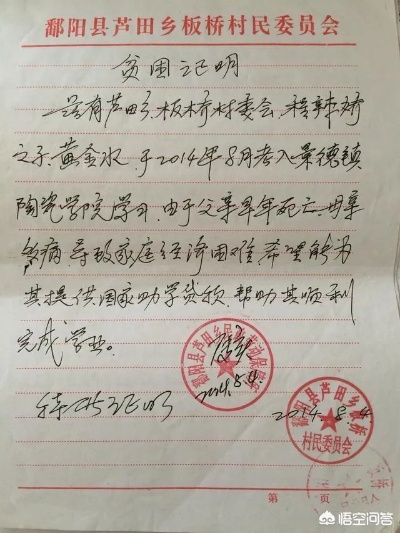 鄱阳县芦田乡板桥村民委员会
贫困证明
兹有芦田乡板桥村委会
之子黄金水于2014年8月考入景德镇
陶瓷学院学习,由于父亲早年死亡,母亲
多病,导致家庭经济困难,希望能为
其提供国家助学贷款,帮助其顺利
完成学业。
属实
鄱阳县芦田乡
2014.8.4
特此证明
2014.8.4
鄱阳县芦田乡板桥
村民委员会
第 页
悟空问答